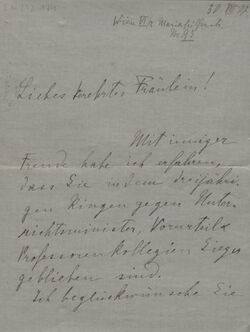 Wien VI/2 Mariahilferstr.
Nr. 93
Liebes verehrtes Fräulein!
Mit inniger
Freude habe ich erfahren,
dass Sie in dem dreijähri-
gen Ringen gegen Unter-
richtsminister, Vorurteil &
Professoren Kollegien Sieger
geblieben sind.
Ich beglückwünsche Sie